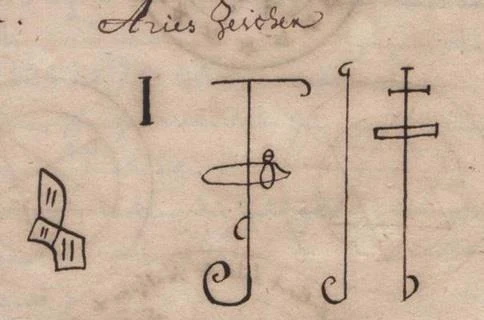 Aries Zeichen
I